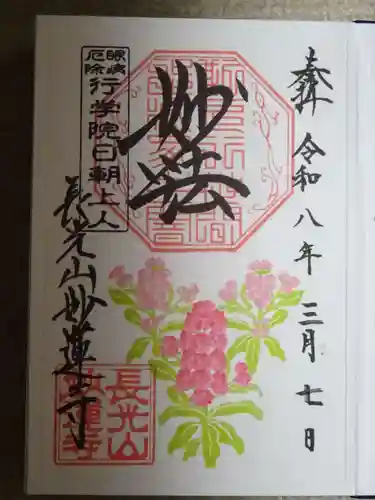 奉拝
令和八年 三月 七日
妙法
眼病
厄除
行学院日朝上人
長光山妙蓮寺
長光山
妙蓮寺